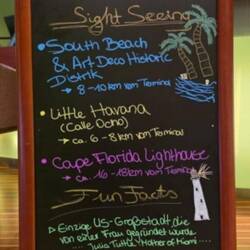 Sight Seeing
• South Beach
& Art Deco Historic
Distrik
→ 8-10km vom Terminal
• Little Havana
(Calle Ocho)
→ ca. 6-8km vom Terminal
• Cape Florida Lighthouse
→ ca. 16-18km vom Terminal
Fun Facts
Einzige US-Großstadt, die
von einer Frau gegründet wurde
Julia Tuttle "Mother of Miami"